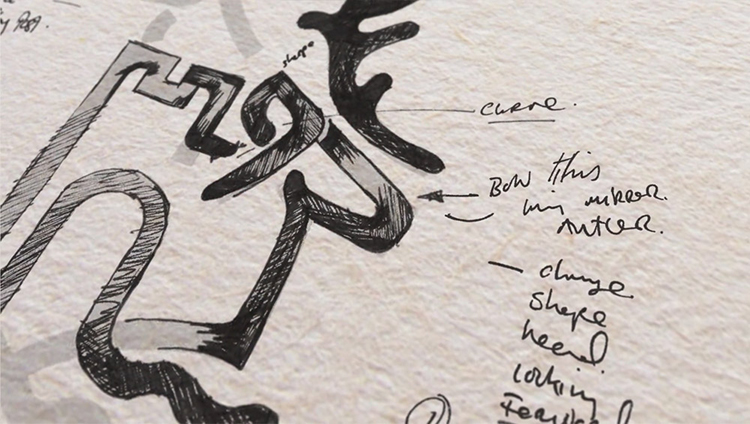 shape
curve.
Bow this
in mirror.
Antler.
— change
Shape
head.
looking
①